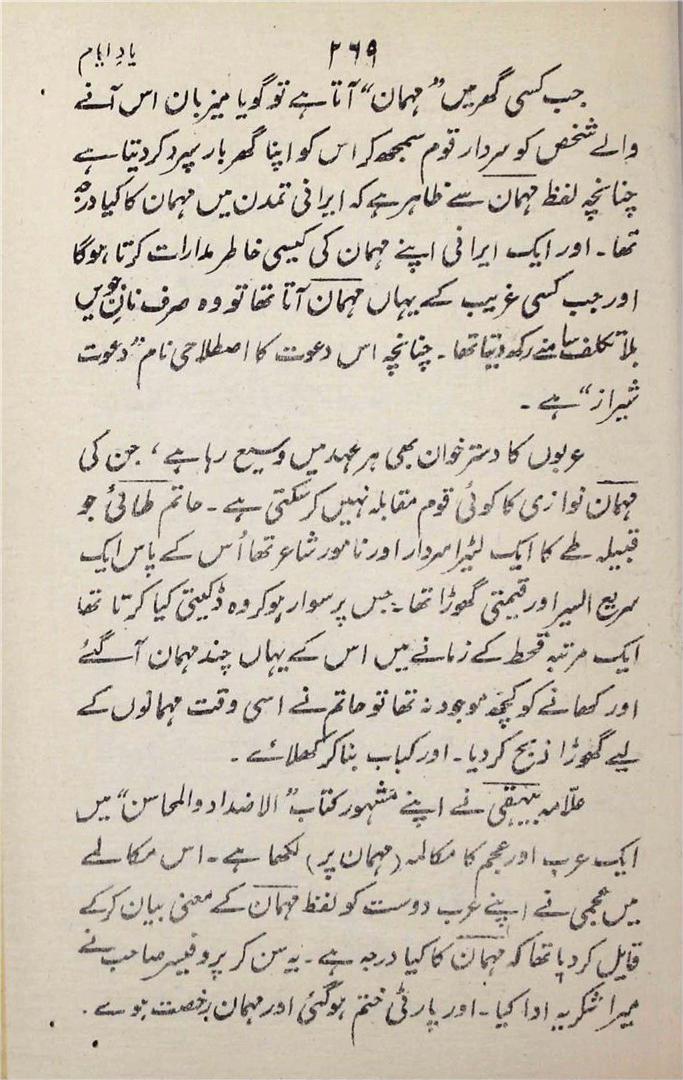 یادِ ایام ۲۶۹
جب کسی گھر میں ”مہمان“ آتا ہے تو گویا میزبان اس آنے
والے شخص کو سردار قوم سمجھ کر اس کو اپنا گھر بار سپرد کر دیتا ہے
چنانچہ لفظ مہمان سے ظاہر ہے کہ ایرانی تمدن میں مہمان کا کیا درجہ
تھا۔ اور ایک ایرانی اپنے مہمان کی کیسی خاطر مدارات کرتا ہوگا
اور جب کسی غریب کے یہاں مہمان آتا تھا تو وہ صرف نانِ جویں
بلا تکلف سامنے رکھ دیتا تھا۔ چنانچہ اس دعوت کا اصطلاحی نام ”دعوت
شیراز“ ہے۔
عربوں کا دسترخوان بھی ہر عہد میں وسیع رہا ہے، جن کی
مہمان نوازی کا کوئی قوم مقابلہ نہیں کر سکتی ہے۔ حاتم طائی جو
قبیلہ طے کا ایک لٹیرا سردار اور نامور شاعر تھا اُس کے پاس ایک
سریع السیر اور قیمتی گھوڑا تھا۔ جس پر سوار ہو کر وہ ڈکیتی کیا کرتا تھا
ایک مرتبہ قحط کے زمانے میں اس کے یہاں چند مہمان آ گئے
اور کھانے کو کچھ موجود نہ تھا تو حاتم نے اسی وقت مہمانوں کے
لیے گھوڑا ذبح کر دیا۔ اور کباب بنا کر کھلائے۔
علّامہ بیہقی نے اپنے مشہور کتاب ”الاضداد والمحاسن“ میں
ایک عرب اور عجم کا مکالمہ (مہمان پر) لکھا ہے۔ اس مکالمے
میں عجمی نے اپنے عرب دوست کو لفظ مہمان کے معنی بیان کر کے
قایل کر دیا تھا کہ مہمان کا کیا درجہ ہے۔ یہ سن کر پروفیسر صاحب نے
میرا شکریہ ادا کیا۔ اور پارٹی ختم ہو گئی اور مہمان رخصت ہوے۔